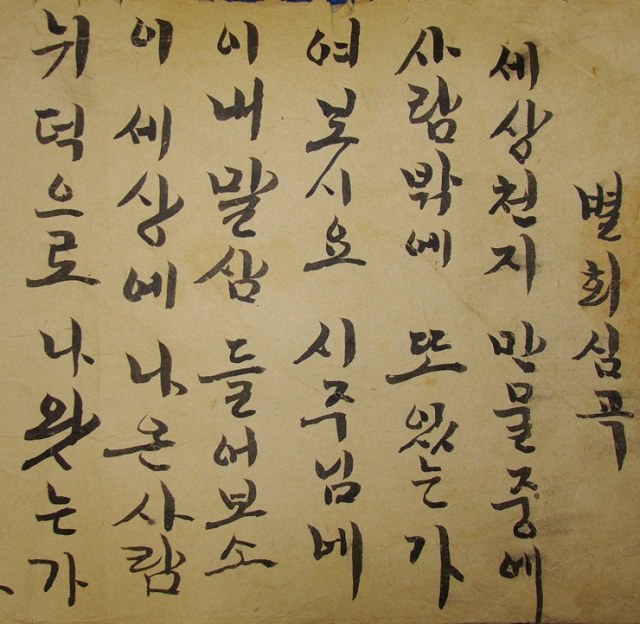 별회심곡
세상천지 만물중에
사람밖에 또 있는가
여보시요 시주님베
이내 말삼 들어보소
이 세상에 나온 사람
뉘 덕으로 나왓는가